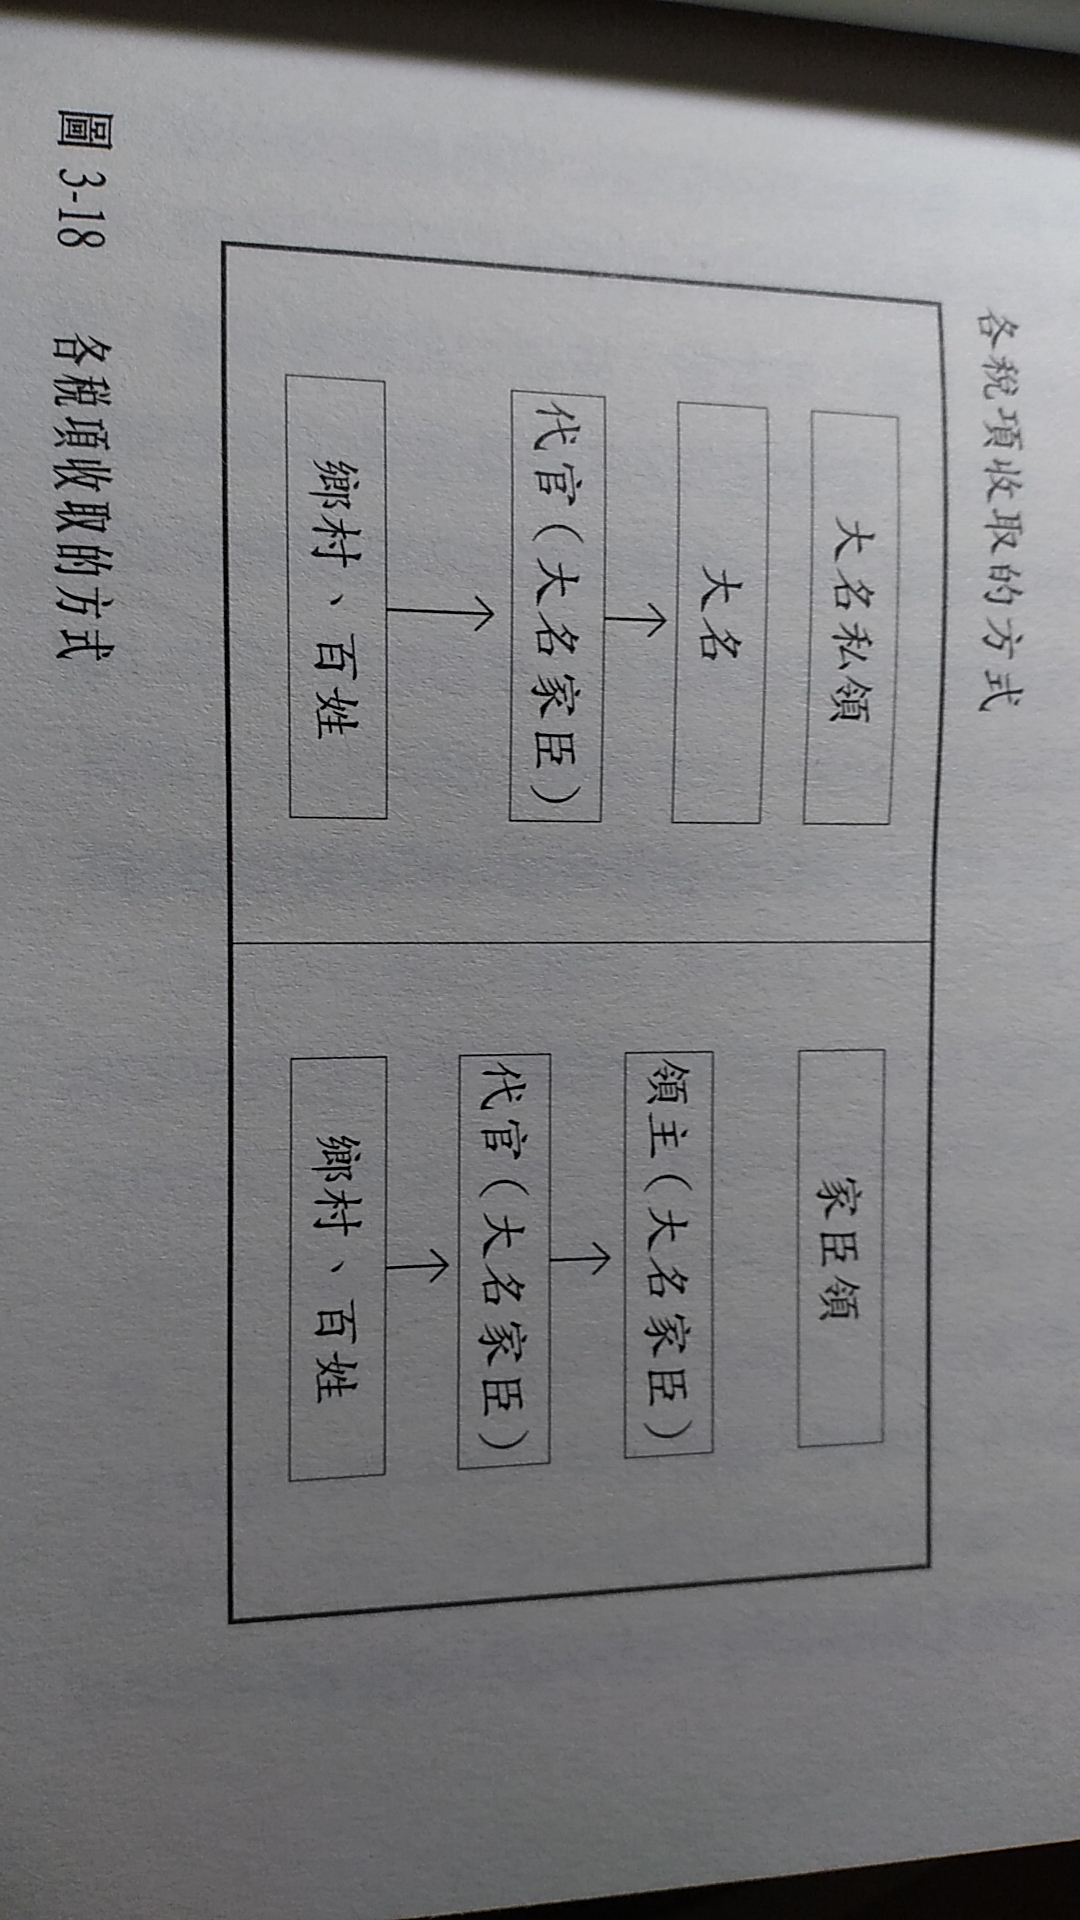 各稅項收取的方式
大名私領
大名
代官(大名家臣)
鄉村、百姓
家臣領
領主(大名家臣)
代官(大名家臣)
鄉村、百姓
圖 3-18 各稅項收取的方式